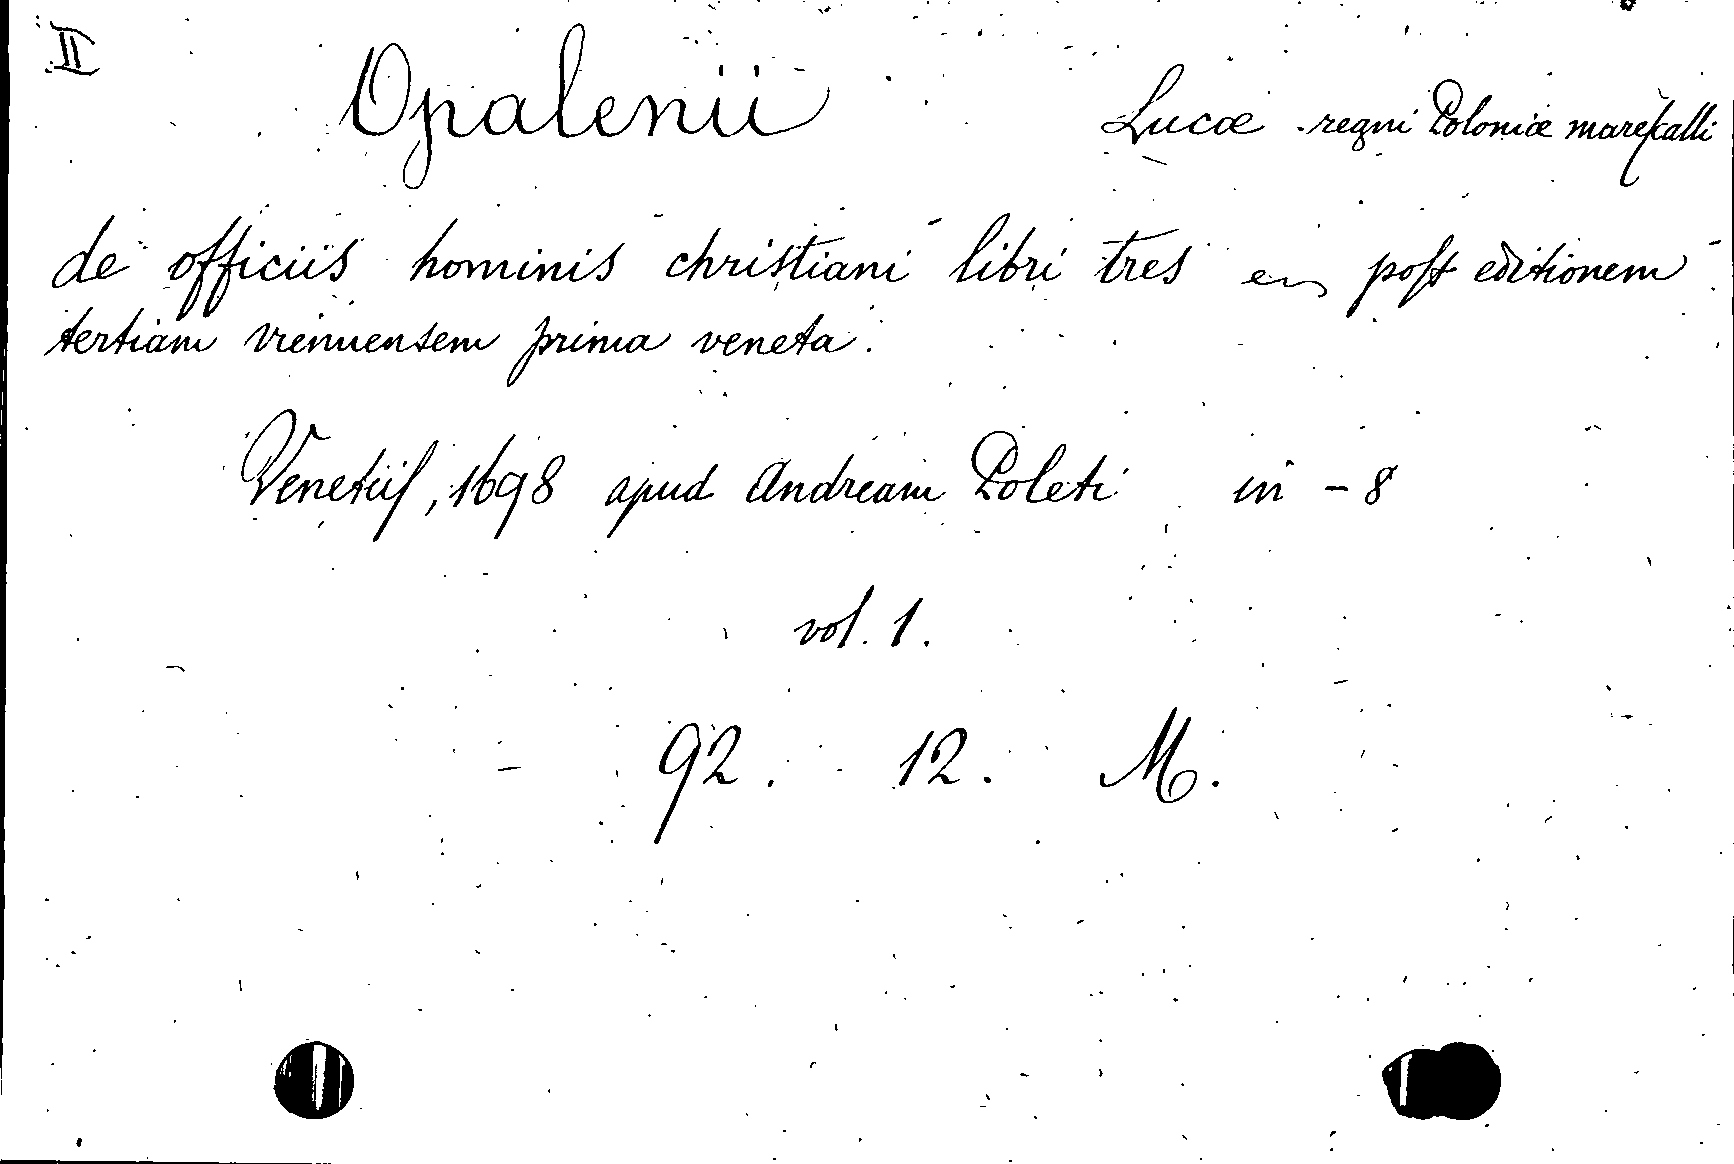 II
Opalenii Lucæ regni Poloniæ mareſcalli
de officiis hominis christiani libri tres en poſt editionem
tertiam viennensem prima veneta.
Venetiiſ, 1698 apud Andream Poleti in - 8
vol. 1.
92. 12. M.